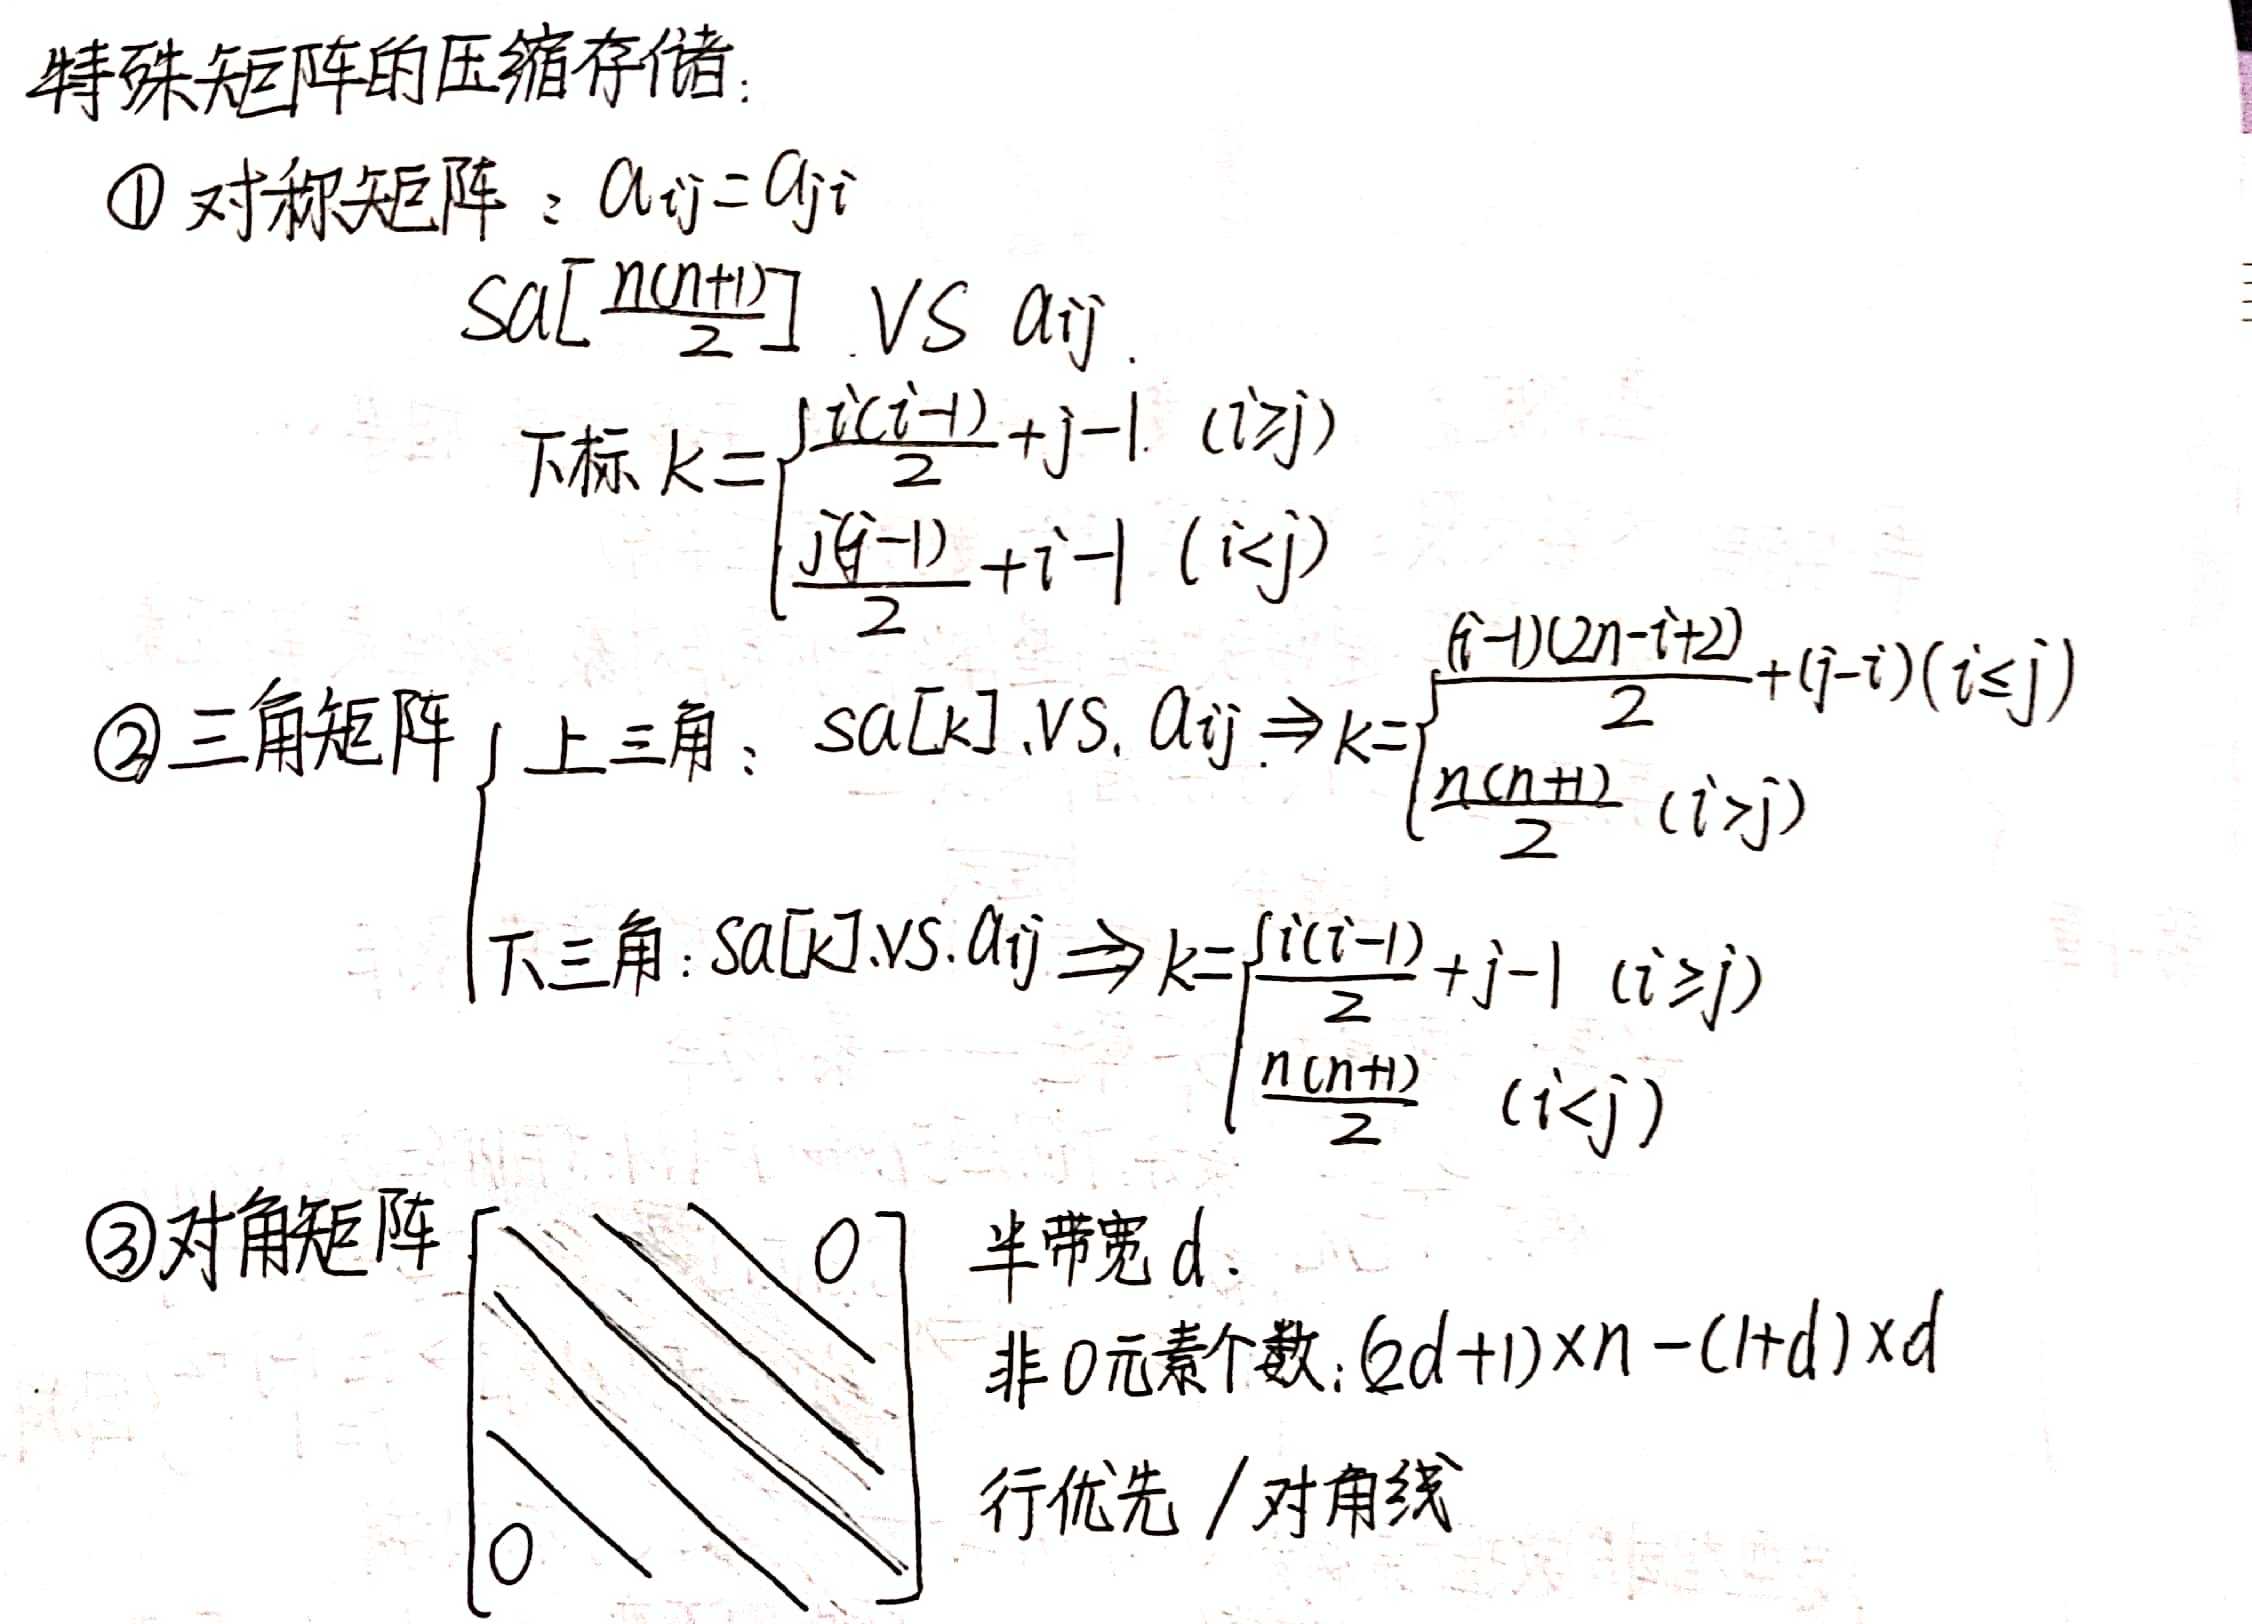 特殊矩阵的压缩存储:
① 对称矩阵 : aij=aji
sa[n(n+1)/2] .VS aij.
下标 k={ i(i-1)/2+j-1. (i≥j)
j(j-1)/2+i-1 (i<j)
②三角矩阵{ 上三角: sa[k].VS. aij.⇒k={ (i-1)(2n-i+2)/2+(j-i)(i≤j)
n(n+1)/2 (i>j)
下三角:sa[k].VS.aij⇒k={ i(i-1)/2+j-1 (i≥j)
n(n+1)/2 (i<j)
③对角矩阵 [ 0 0 ] 半带宽d.
非0元素个数:(2d+1)×n-(1+d)×d
行优先/对角线